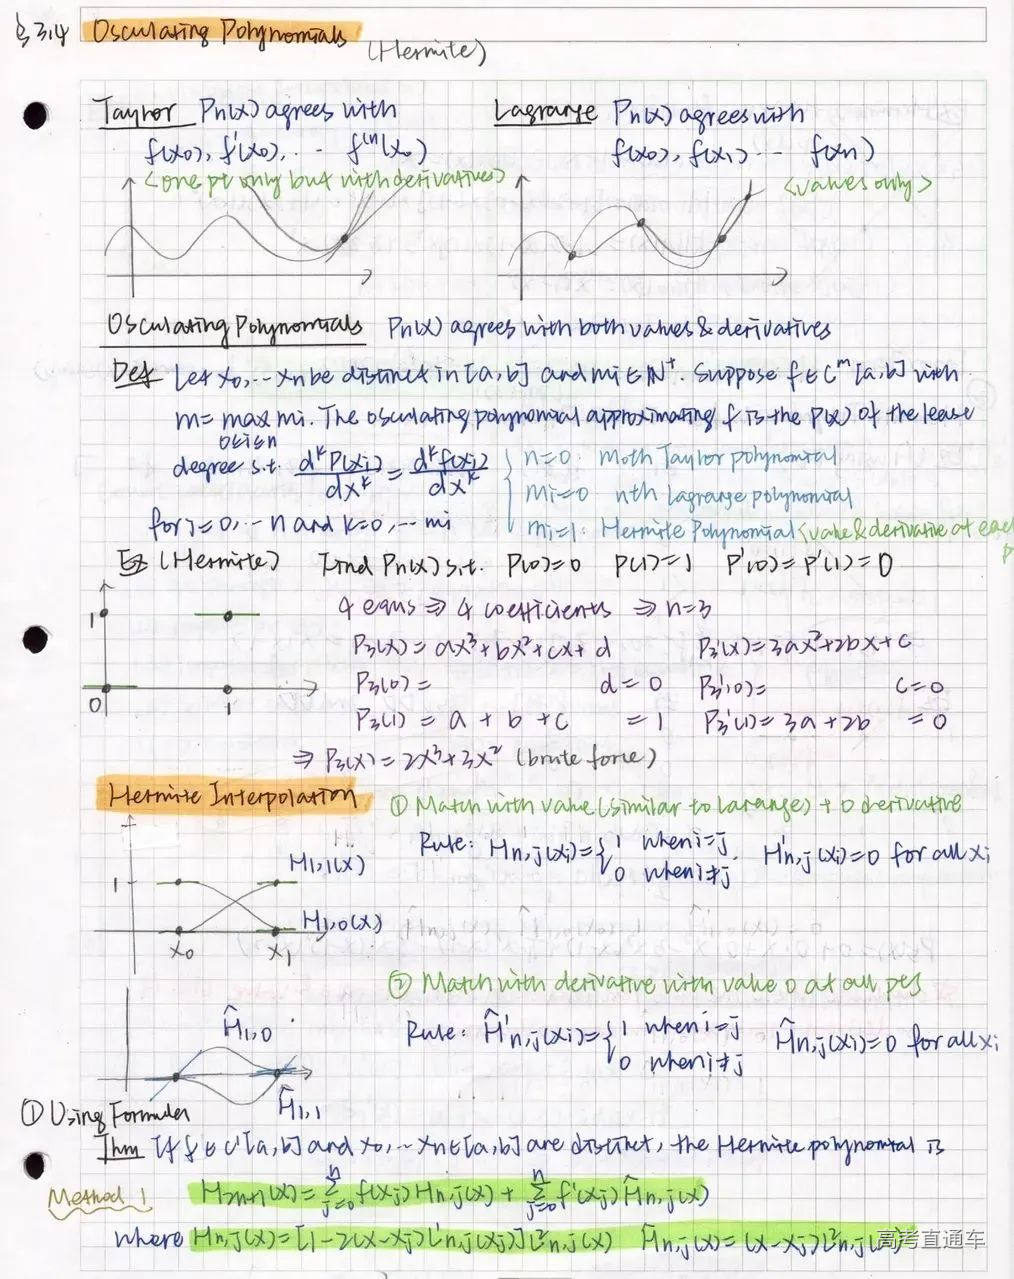 §3.4 Osculating Polynomials (Hermite)
Taylor Pn(x) agrees with
f(x₀), f'(x₀), ... f⁽ⁿ⁾(x₀)
<one pt only but with derivatives>
Lagrange Pn(x) agrees with
f(x₀), f(x₁) ... f(xn)
<values only>
Osculating Polynomials Pn(x) agrees with both values & derivatives
Def Let x₀, ... xn be distinct in [a, b] and mi ∈ ℕ⁺. Suppose f ∈ Cᵐ[a, b] with
m = max mi. The osculating polynomial approximating f is the P(x) of the lease
0≤i≤n
degree s.t. dᵏP(xi)/dxᵏ = dᵏf(xi)/dxᵏ
for i = 0, ... n and k = 0, ... mi
{ n=0: moth Taylor polynomial
mi=0 nth Lagrange polynomial
mi=1: Hermite Polynomial <value & derivative at each p
Eg (Hermite) Find Pn(x) s.t. P(0)=0 P(1)=1 P'(0)=P'(1)=0
4 eqns ⇒ 4 coefficients ⇒ n=3
P₃(x) = ax³+bx²+cx+d P₃'(x) = 3ax²+2bx+c
P₃(0) = d = 0 P₃'(0) = c = 0
P₃(1) = a + b + c = 1 P₃'(1) = 3a+2b = 0
⇒ P₃(x) = 2x³+3x² (brute force)
1
0
1
Hermite Interpolation
① Match with value (similar to larange) + 0 derivative
Rule: Hn,j(xi) = { 1 when i=j, 0 when i≠j. H'n,j(xi)=0 for all xi
1
H1,1(x)
H1,0(x)
x₀ x₁
② Match with derivative with value 0 at all pts
Rule: Ĥ'n,j(xi) = { 1 when i=j 0 when i≠j Ĥn,j(xi)=0 for all xi
Ĥ1,0
Ĥ1,1
① Using Formular
Thm If f ∈ C'[a, b] and x₀, ... xn ∈ [a, b] are distinct, the Hermite polynomial is
Method 1 H2n+1(x) = Σⁿj=0 f(xj) Hn,j(x) + Σⁿj=0 f'(xj) Ĥn,j(x)
where Hn,j(x) = [1-2(x-xj)L'n,j(xj)]L²n,j(x) Ĥn,j(x) = (x-xj)L²n,j(x)
高考直通车